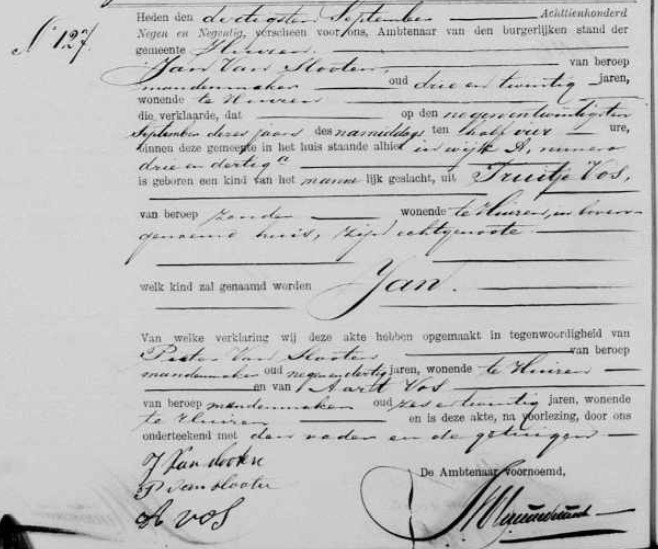 N° 127.
Heden den dertigsten September Achttienhonderd
Negen en Negentig, verscheen voor ons, Ambtenaar van den burgerlijken stand der
gemeente Huizen.
Jan Van Slooten, van beroep
mandenmaker oud drie en twintig jaren,
wonende te Huizen
die verklaarde, dat op den negenentwintigsten
September dezes jaars des namiddags ten half vier ure,
binnen deze gemeente in het huis staande alhier in wijk A, numero
drie en dertig a
is geboren een kind van het mannelijk geslacht, uit Truitje Vos,
van beroep zonder wonende te Huizen, in boven
genoemd huis, zijn echtgenoote
welk kind zal genaamd worden Jan.
Van welke verklaring wij deze akte hebben opgemaakt in tegenwoordigheid van
Pieter Van Slooten van beroep
mandenmaker oud negenendertig jaren, wonende te Huizen
en van Aart Vos
van beroep mandenmaker oud zesentwintig jaren, wonende
te Huizen en is deze akte, na voorlezing, door ons
onderteekend met den vader en de getuigen
J Van slooten
P van slooten
A vos
De Ambtenaar voornoemd,